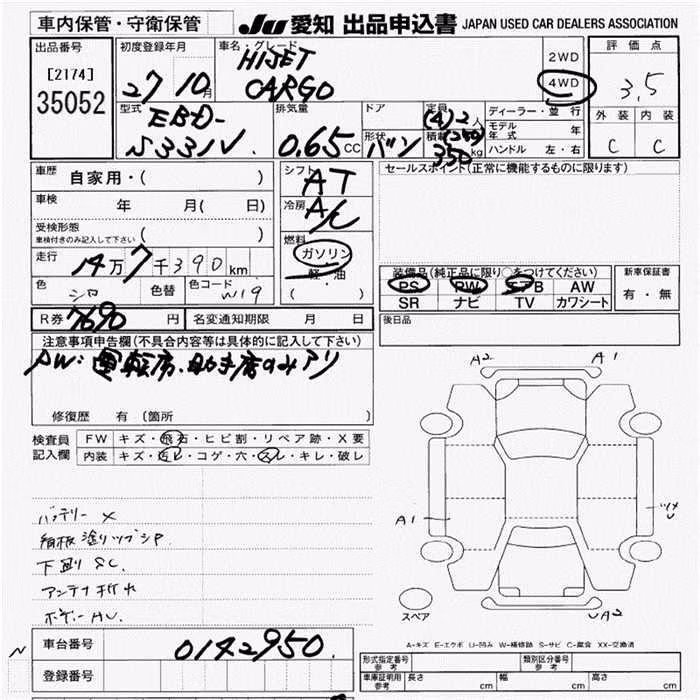 車内保管・守衛保管
JU 愛知 出品申込書 JAPAN USED CAR DEALERS ASSOCIATION
出品番号
[2174]
35052
初度登録年月
27 10月
車名・グレード
HIJET
CARGO
2WD
4WD
評価点
3.5
外装 内装
C C
型式
EBD-
S331V
排気量
0.65 CC
ドア
形状
バン
定員
(4)-2人
積載
(250)
350 kg
ディーラー・並行
モデル年式 年
ハンドル 左・右
車歴
自家用・( )
車検
年 月( 日)
受検形態
車検付きのみ記入して下さい ( )
走行
14万7千390km
色 シロ 色替 色コード W19
シフト
AT
冷房
A/C
燃料
ガソリン
軽・油
( )
セールスポイント(正常に機能するものに限ります)
装備品(純正品に限り○をつけてください)
PS PW エアB AW
SR ナビ TV カワシート
新車保証書
有・無
R券 7690円 名変通知期限 月 日
後日品
注意事項申告欄(不具合内容等は具体的に記入して下さい)
PW:運転席、助手席のみアリ
修復歴 有 (箇所 )
検査員
記入欄
FW キズ・飛石・ヒビ割・リペア跡・X要
内装 キズ・汚レ・コゲ・穴・スレ・キレ・破レ
バッテリー X
看板塗りツブシP
下廻り SC
アンテナ折れ
ボデーAU
A2 A1
A1
ツメ
U
スペア
UA2
A-キズ E-エクボ U-凹み W-補修跡 S-サビ C-腐食 XX-交換済
N
車台番号
0142950
登録番号
形式指定番号
参考
類別区分番号
参考
車庫証明用
参考
長さ cm 幅 cm 高さ cm